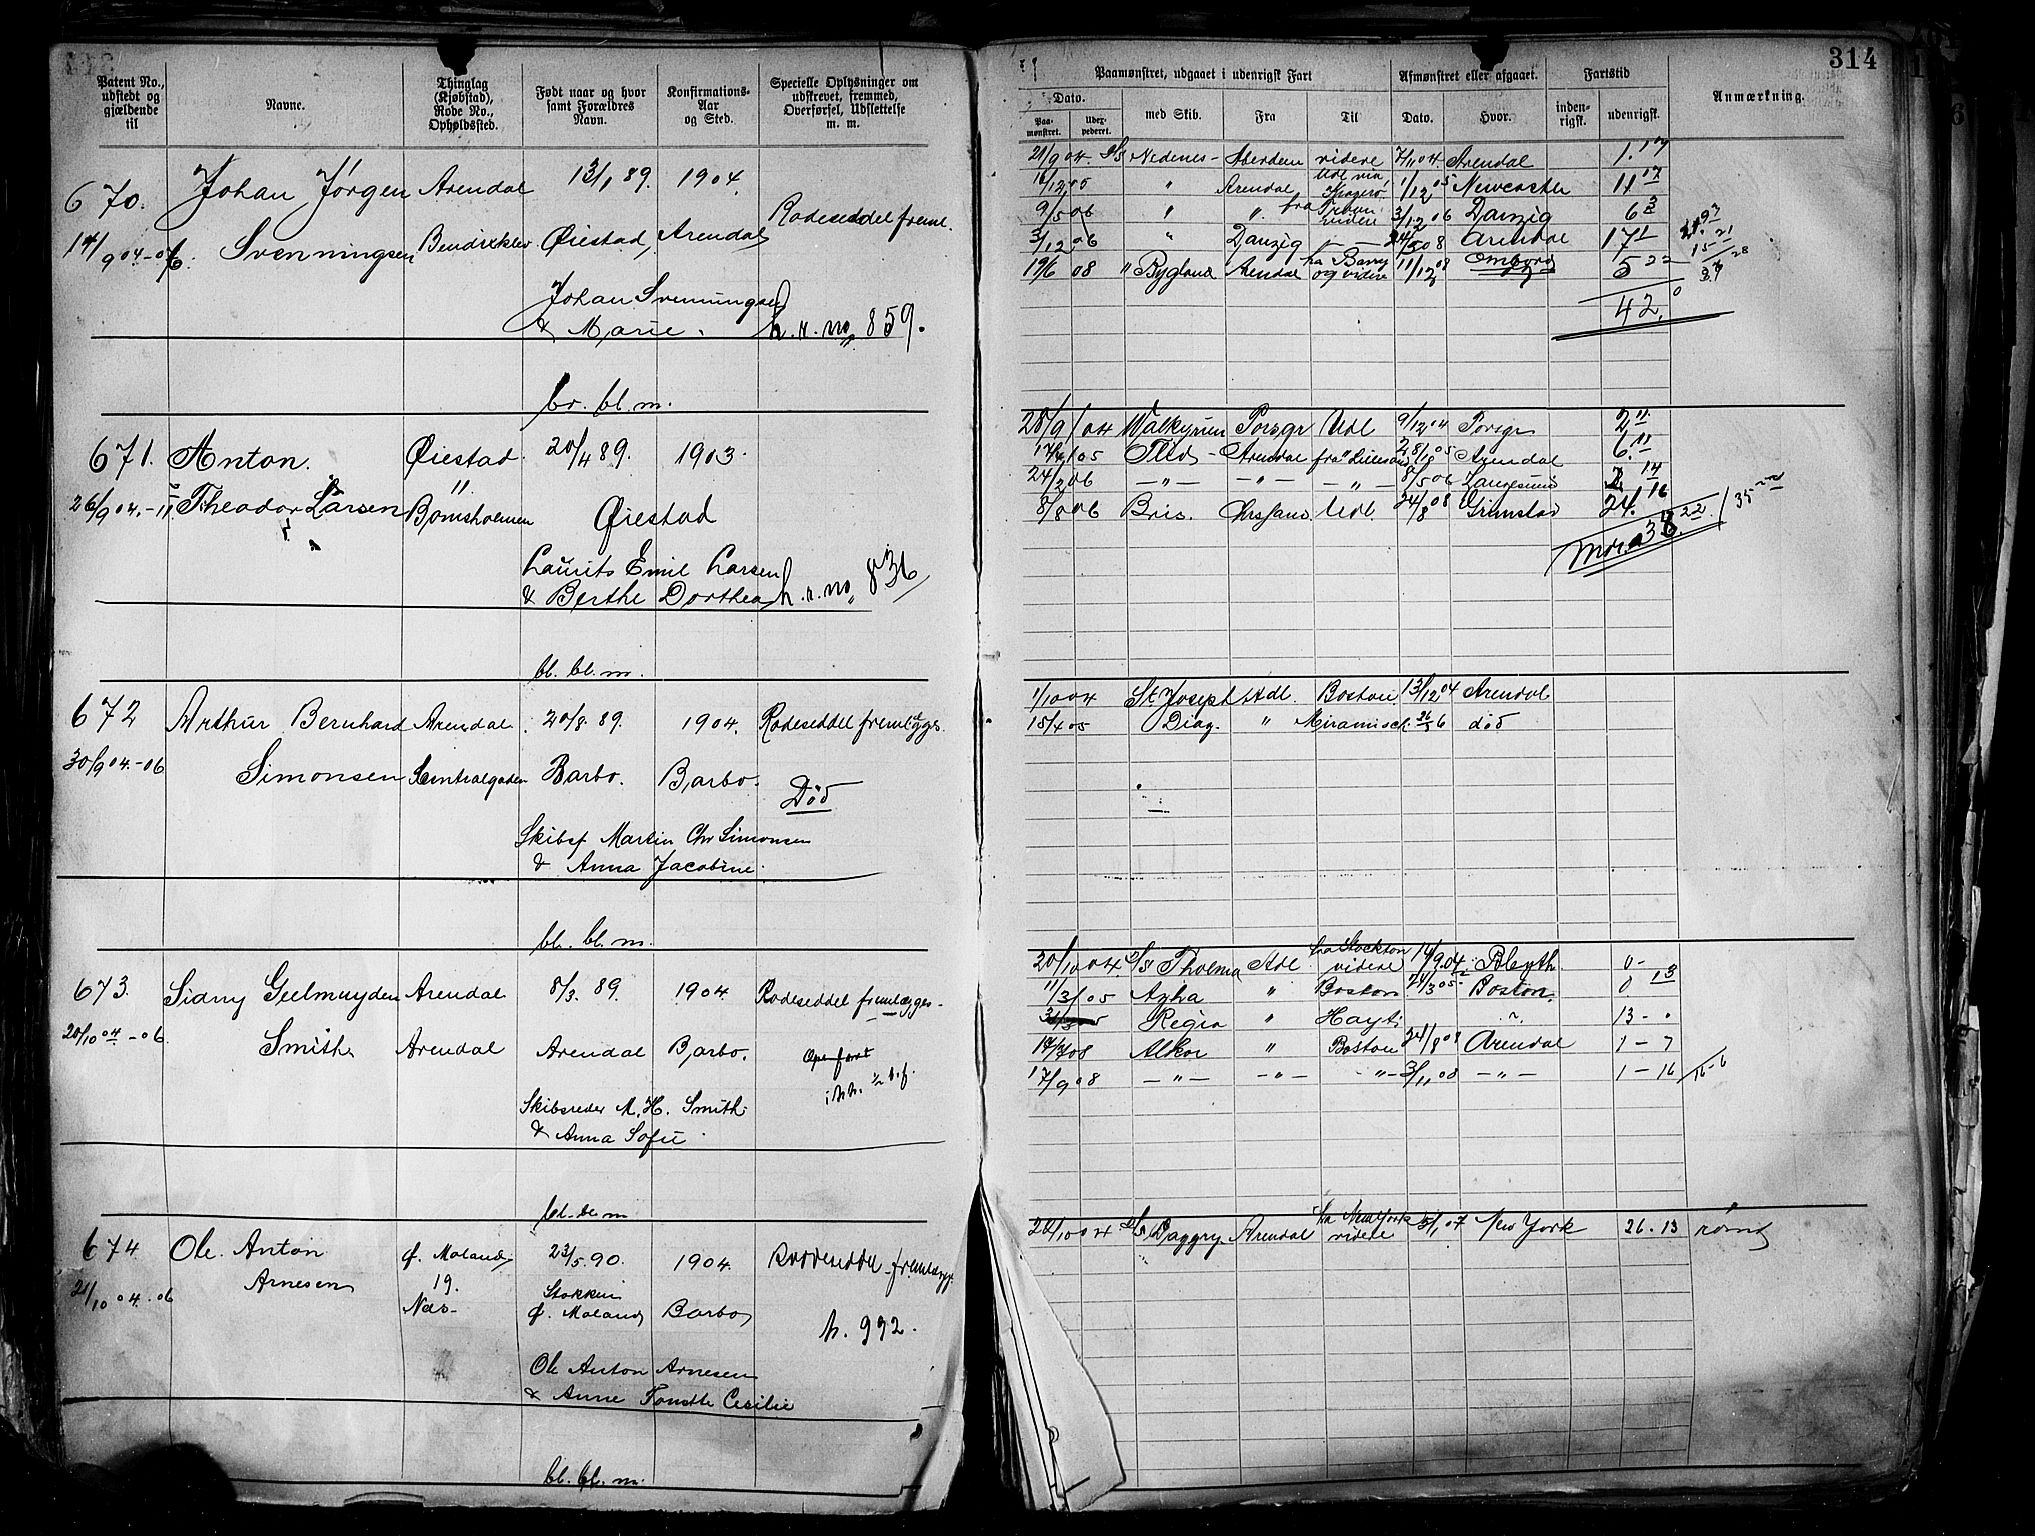 314
Patent No., udstedt og gjældende til
Navne.
Thinglag (Kjøbstad), Rode No., Opholdssted.
Født naar og hvor samt Forældres Navn.
Konfirmations-Aar og Sted.
Specielle Oplysninger om udskrevet, fremmed, Overførsel, Udslettelse m. m.
Paamønstret, udgaaet i udenrigsk Fart
Afmønstret eller afgaaet.
Fartstid
Anmærkning.
Dato.
med Skib.
Fra
Til
Dato.
Hvor.
inden-rigsk.
udenrigsk.
Paa-mønstret.
Udex-pederet.
670. Johan Jørgen Arendal 13/1 89. 1904.
14/9 04-06. Svenningsen Bendiksklev Øiestad, Arendal Rodeseddel freml.
Johan Svenningsen
& Marie. h. r. no, 859.
br. bl. m.
21/9 04. S/S Nedenes - Aberdeen videre 7/11 04. Arendal 1. 17
" Arendal Udl via Kragerø 1/12 05 Newcastle 11 17
9/5 06 " " fra 3/12 06 Danzig 6 3
3/12 06 " Danzig — — 24/5 08 Arendal 17 1
19/6 08 " Bygland Arendal fra Barry og videre 11/12 08 ombord 5 22
42. 0
671. Anton Øiestad 20/4 89. 1903.
26/9 04.-11 Theodor Larsen " Bomsholmen Øiestad
Laurits Emil Larsen
& Berthe Dorthea h. r. no, 836
bl. bl. m.
28/9 04 Walkyrien Porsgr Udl 9/12 04 Porsgr 2 11
Arendal fra Lillesand 28/8 05 Arendal 6. 11
24/2 06 — " — — " — — " — 8/5 06 Langesund 2 14
8/8 06 Bris. Chrssand Udl. 24/8 08 Grimstad 24. 16
38. 22 / 35 22
672 Arthur Bernhard Arendal 20/8. 89. 1904. Rodeseddel fremlægges
30/9 04.-06 Simonsen Sentralgaden Barbo. Barbo.
Død
Skibsf Martin Chr Simonsen
& Anna Jacobine.
bl. bl. m.
1/10 04 St Joseph Adl. Boston 13/12 04 Arendal
15/4 05 Diaz. " Miramichi 6 død
673. Sidny Geelmuyden Arendal 8/3. 89. 1904 Rodeseddel fremlægges-
20/10 04 -06. Smith Arendal Arendal Barbo.
Skibsreder M. H. Smith
& Anna Sofie.
bl. bl. m
20/10 04. S/S Thelma Adl fra Stockton videre Blyth 0- 13
11/3 05 " Boston 05 Boston. 0
Regia " Hayti " 13 - 0
Alkor " Boston 24/8 08 Arendal 1 - 7
17/9 08 — " — — " — " — 3/11 08 — " — 1 - 16 16-6
674 Ole Anton Ø. Moland 23/5. 90. 1904. Rodeseddel fremlægg.
21/10 04.-06 Arnesen 19. Næs- Stokken Ø. Moland Barbo
h. 992.
Ole Anton Arnesen
& Anne Cesilie
bl. bl. m.
S/S Daggry Arendal fra New York videre 07 New York 26. 13 rømt